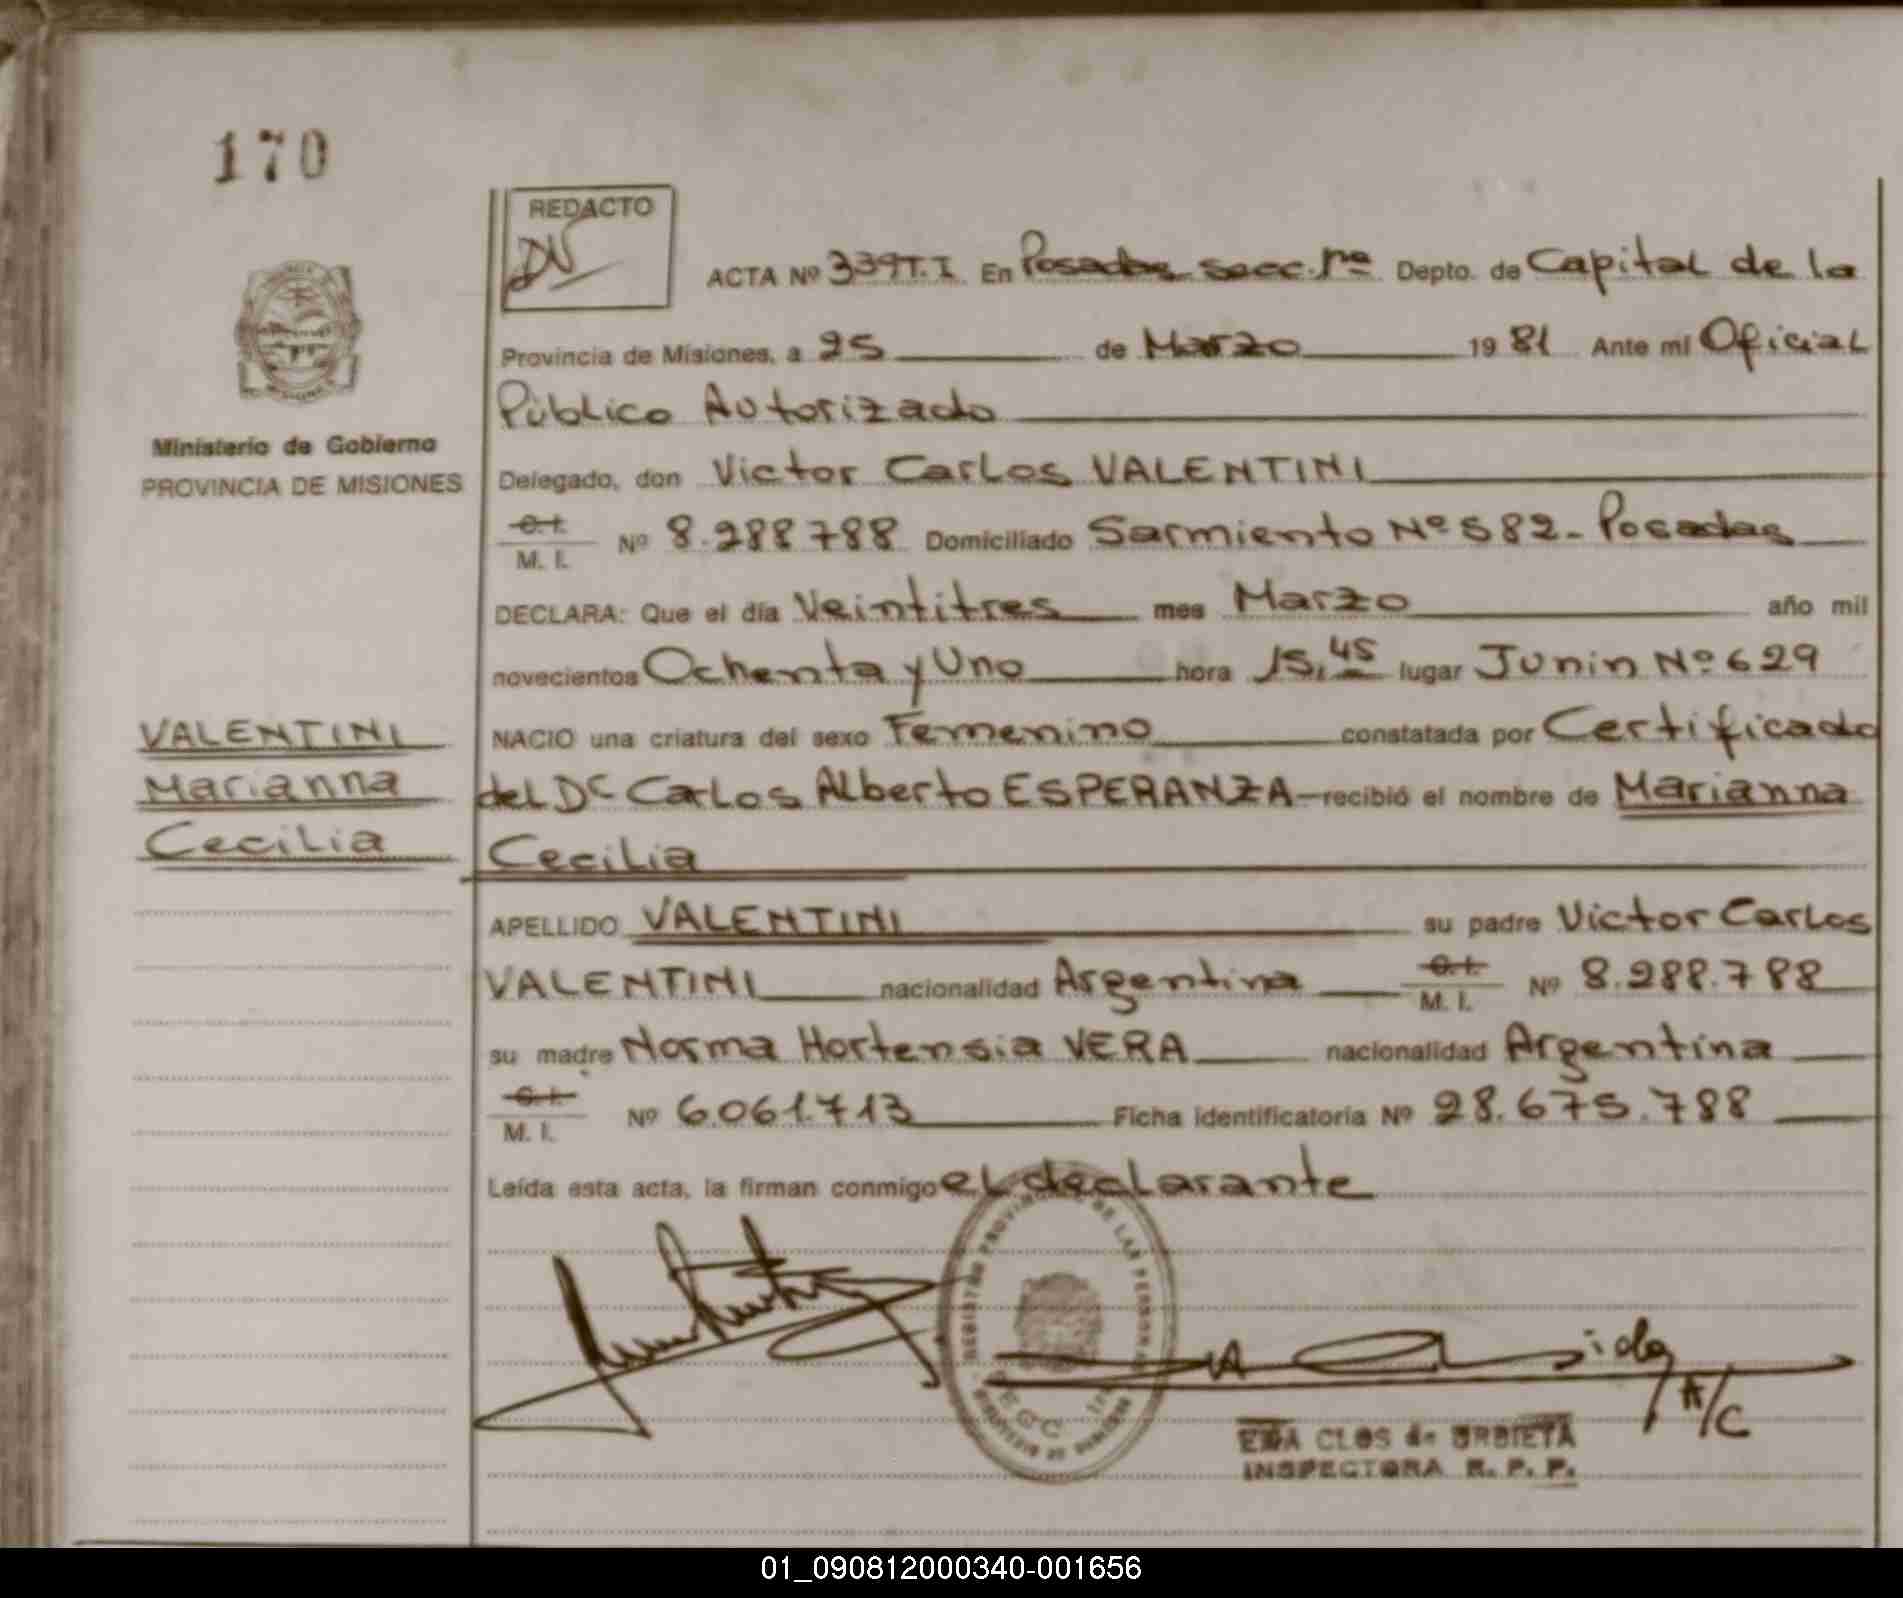 170
REDACTO
ACTA Nº 339T.I En Posadas secc. 1ra Depto. de Capital de la
Provincia de Misiones, a 25 de Marzo 19 81 Ante mi Oficial
Público Autorizado
Ministerio de Gobierno
PROVINCIA DE MISIONES
Delegado, don Victor Carlos VALENTINI
C.I.
M. I. Nº 8.288788 Domiciliado Sarmiento Nº 582- Posadas
DECLARA: Que el día Veintitres mes Marzo año mil
novecientos Ochenta y Uno hora 15,45 lugar Junin Nº 629
VALENTINI
Marianna
Cecilia
NACIO una criatura del sexo Femenino constatada por Certificado
del Dr Carlos Alberto ESPERANZA recibió el nombre de Marianna
Cecilia
APELLIDO VALENTINI su padre Victor Carlos
VALENTINI nacionalidad Argentina C.I. M. I. Nº 8.288.788
su madre Norma Hortensia VERA nacionalidad Argentina
C.I.
M. I. Nº 6.061.713 Ficha identificatoria Nº 28.675.788
Leída esta acta, la firman conmigo el declarante
REGISTRO PROVINCIAL DE LAS PERSONAS
A/C
CLOS de URBIETA
INSPECTORA R. P. P.
01_090812000340-001656